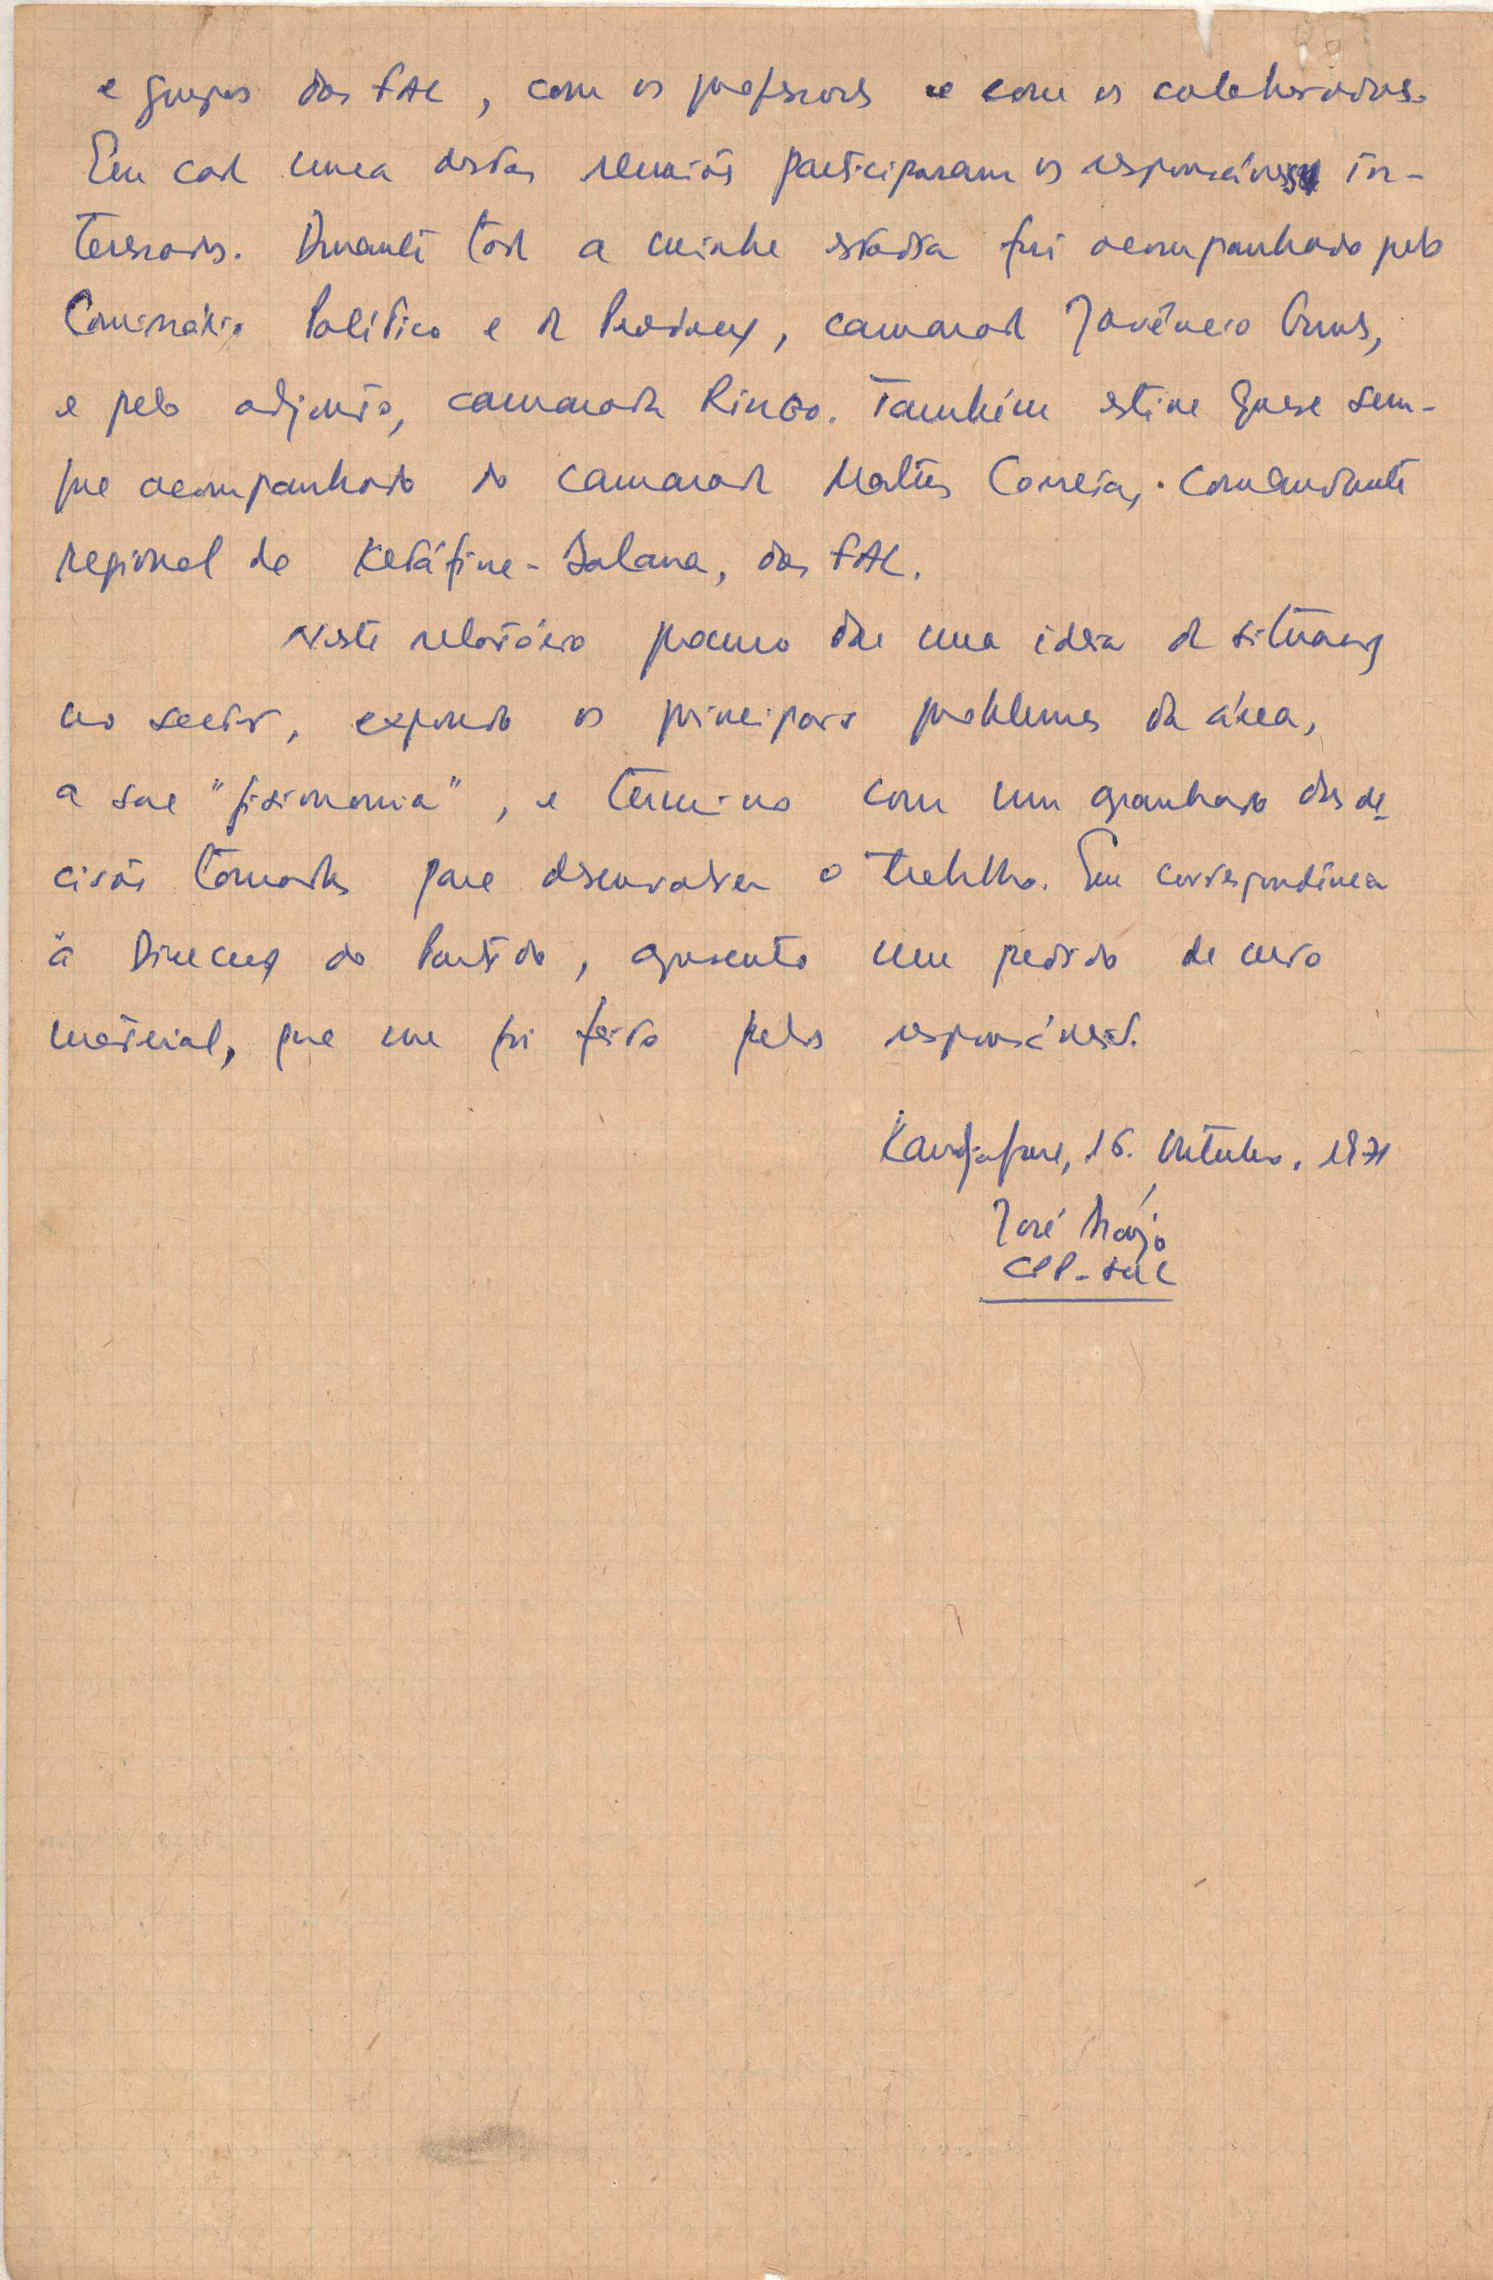 e grupos das FAL, com os professores e com os colaboradores.
Em cada uma destas reuniões participaram os responsáveis in-
teressados. Durante toda a minha estadia fui acompanhado pelo
Comissário Político e da Produção, camarada Juvêncio Gomes,
e pelo adjunto, camarada Ringo. Também estive quase sem-
pre acompanhado do camarada Mateus Correia, comandante
regional de Ketáfine-Balana, das FAL.
Neste relatório procuro dar uma ideia da situação
no sector, expondo os principais problemas da área,
a sua "fisionomia", e termino com um apanhado das de-
cisões tomadas para desenvolver o trabalho. Em correspondência
à Direcção do Partido, apresento um pedido de
material, que me foi feito pelos responsáveis.
Kandjafara, 16. Outubro, 1971
José Araújo
CPP-Sul